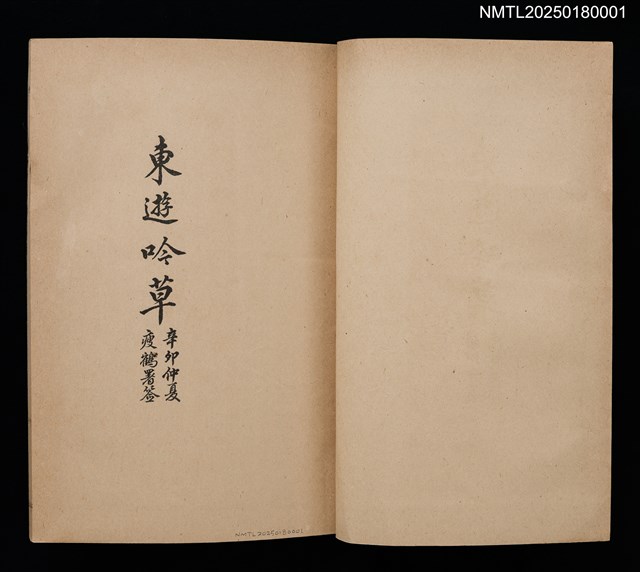 NMTL20250180001
東遊吟草
辛卯仲夏
瘦鶴署簽
NMTL20250180001